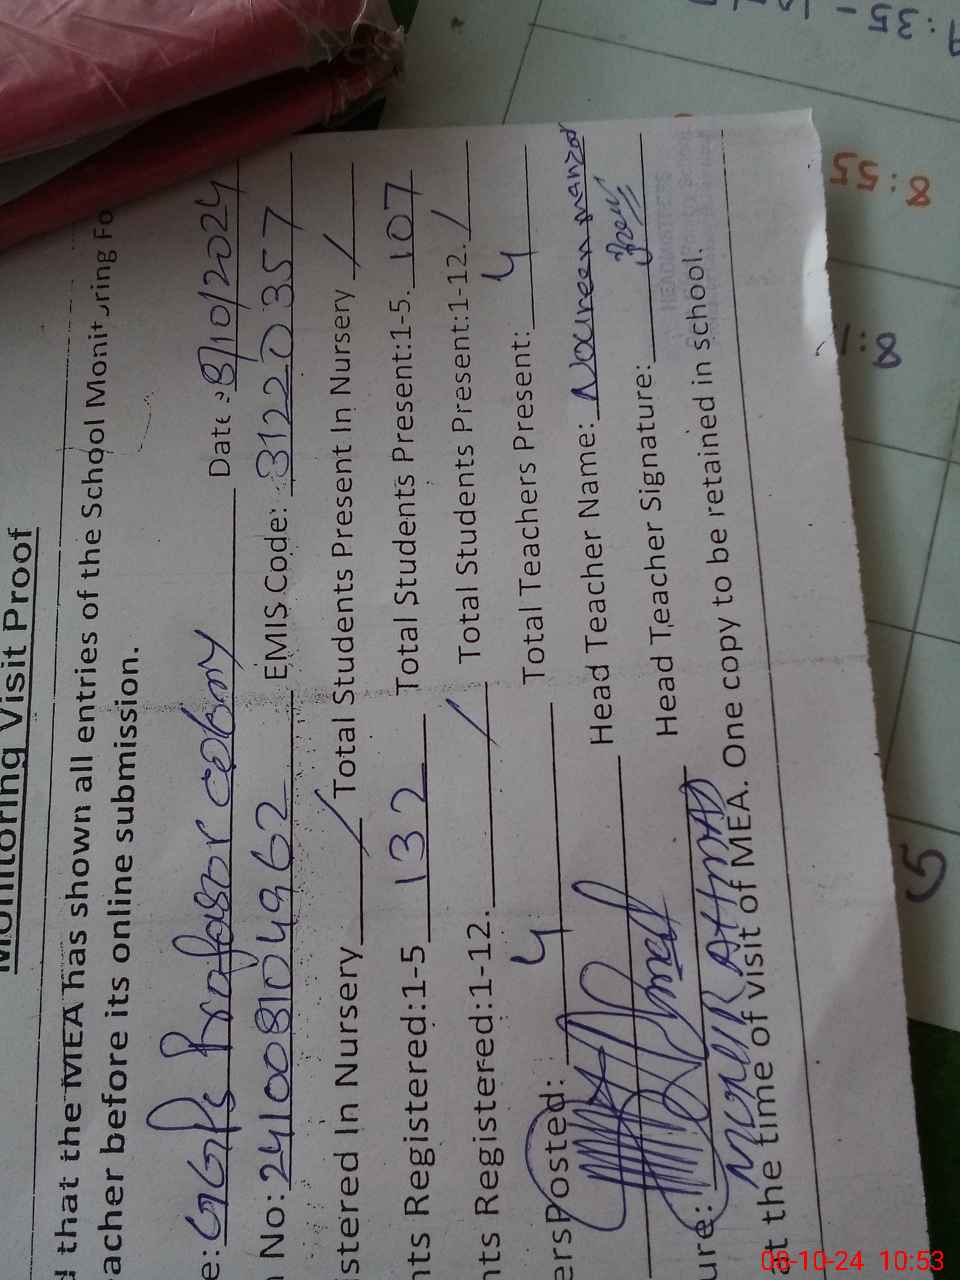 Monitoring Visit Proof
that the MEA has shown all entries of the School Monitoring Fo
eacher before its online submission.
e: GGPS Profasor colony Date: 8/10/2024
No: 241008104962 EMIS Code: 31220357
istered In Nursery / Total Students Present In Nursery /
nts Registered:1-5 132 Total Students Present:1-5. 107
nts Registered:1-12. / Total Students Present:1-12. /
ers Posted: 4 Total Teachers Present: 4
Head Teacher Name: Noureen manzoor
ure: Head Teacher Signature:
MUNIR AHMAD
at the time of visit of MEA. One copy to be retained in school.
8:55
5
08-10-24 10:53